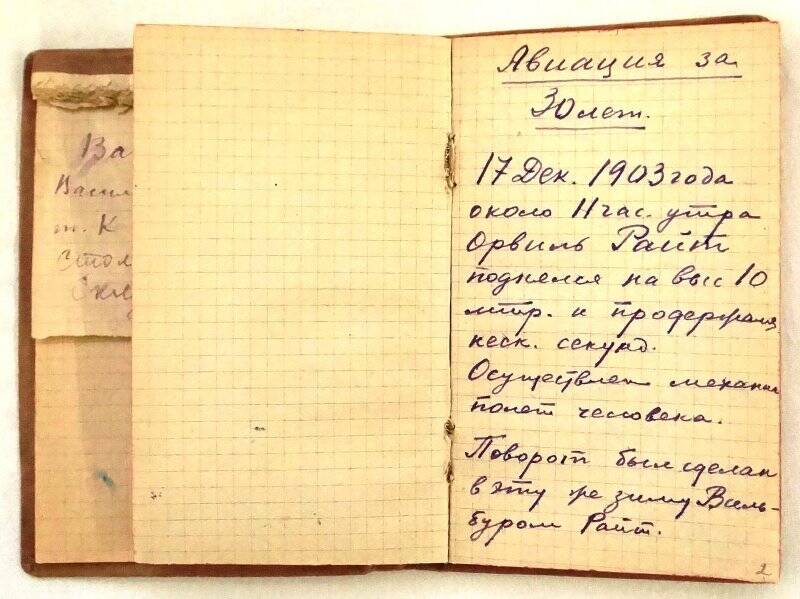 Ва
Васил
т. К
Стол
Авиация за
30 лет.
17 Дек. 1903 года
около 11 час. утра
Орвиль Райт
поднялся на выс 10
мтр. и продержался
неск. секунд.
Осуществлен механич
полет человека.
Поворот был сделан
в эту же зиму Виль-
буром Райт.
2